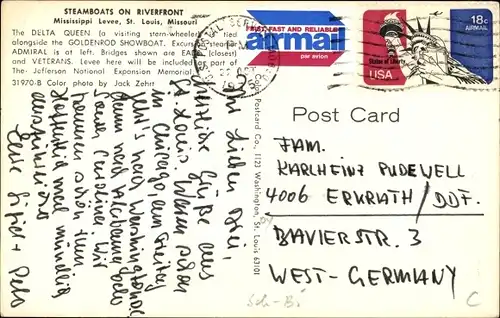 STEAMBOATS ON RIVERFRONT
Mississippi Levee, St. Louis, Missouri
The DELTA QUEEN (a visiting stern-wheeler) is tied
alongside the GOLDENROD SHOWBOAT. Excursion steamer
ADMIRAL is at left. Bridges shown are EADS
and VETERANS. Levee here will be included for part of
The Jefferson National Expansion Memorial
31970-B Color photo by Jack Zehrt
FAST, FAST AND RELIABLE
airmail
par avion
18c
AIRMAIL
Statue of Liberty
USA
Post Card
Postcard Co., 1123 Washington, St. Louis 63101
Ihr Lieben Drei,
herzliche Grüße aus
St. Louis. Waren schon
in Chicago, am Freitag
geht's nach Washington,
dann nach
Carolina. Wir
kommen schon
mal mündlich
Peter
FAM.
KARLHEINZ PUDEWELL
4006 ERKRATH/DDF.
BAVIERSTR. 3
WEST-GERMANY
C
Sch-B.